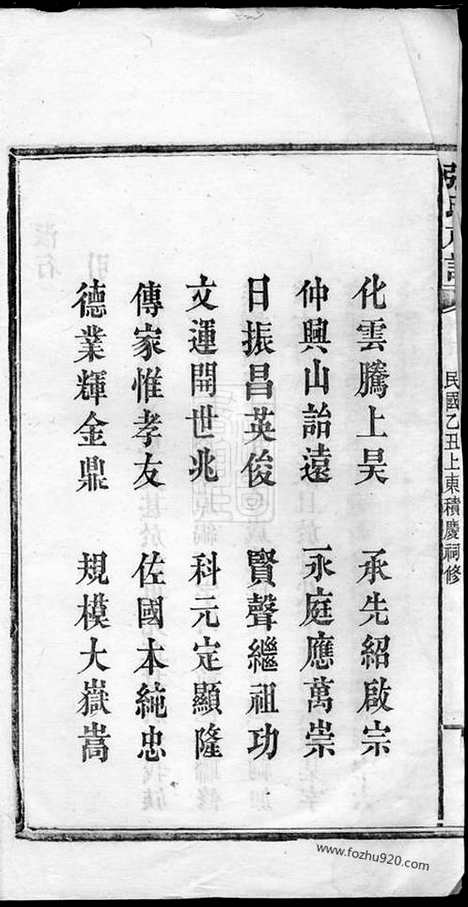 張氏六譜
民國乙丑上東積慶祠修
化雲騰上昊 承先紹啟宗
仲興山詒遠 永庭應萬崇
日振昌英俊 賢聲繼祖功
文運開世兆 科元定顯隆
傳家惟孝友 佐國本純忠
德業輝金鼎 規模大嶽嵩
www.fozhu920.com